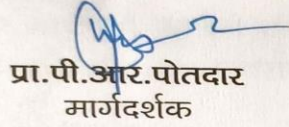 प्रा.पी.आर.पोतदार
मार्गदर्शक